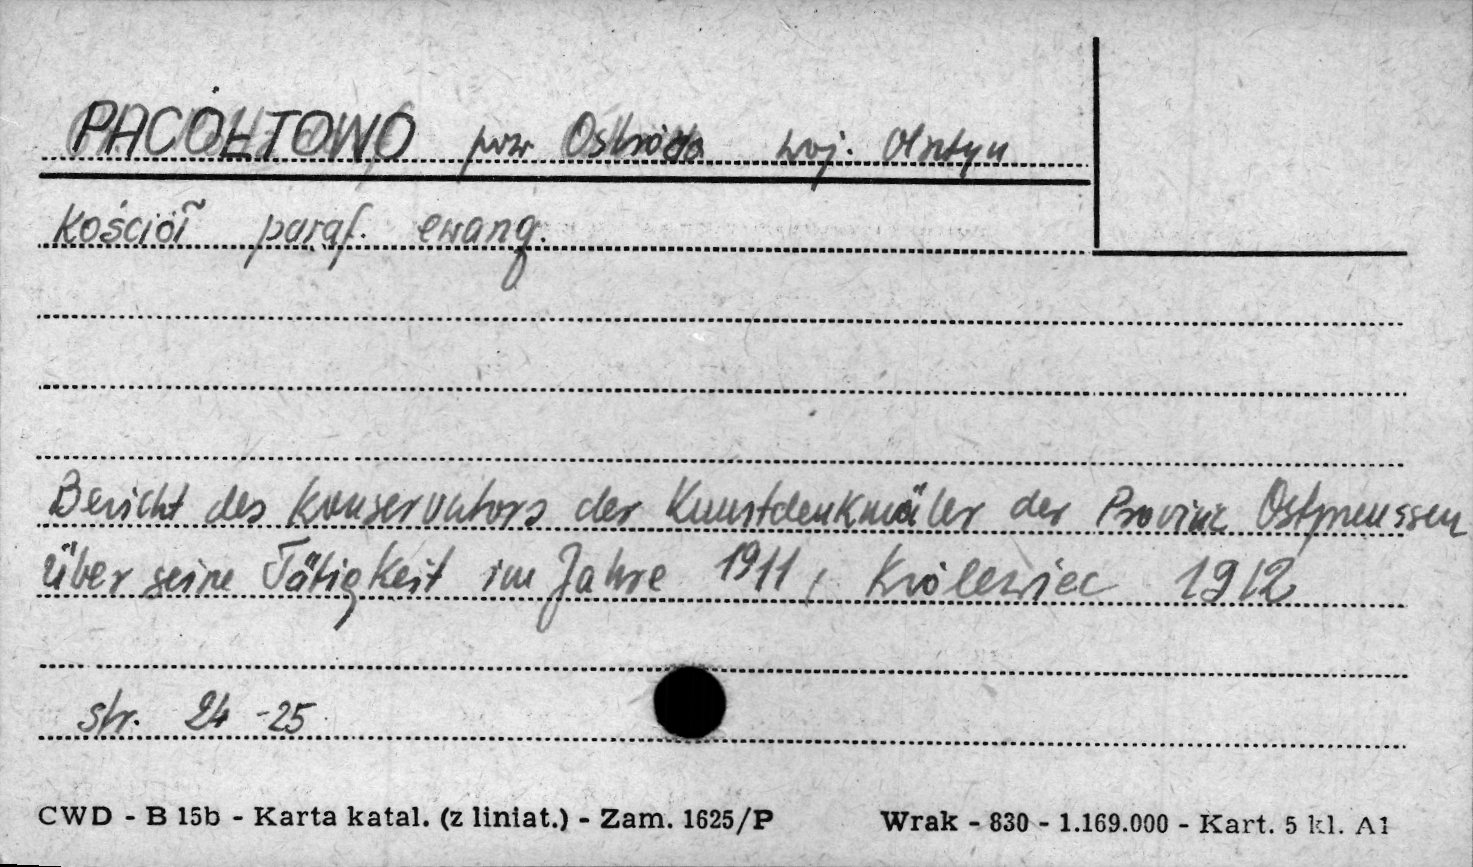 PACÓŁTOWO pow Ostróda woj. Olsztyn
Kościół paraf. ewang.
Bericht des Konservators der Kunstdenkmäler der Provinz Ostpreussen
über seine Tätigkeit im Jahre 1911, Królewiec 1912
str. 24-25
CWD - B 15b - Karta katal. (z liniat.) - Zam. 1625/P Wrak - 830 - 1.169.000 - Kart. 5 kl. A1